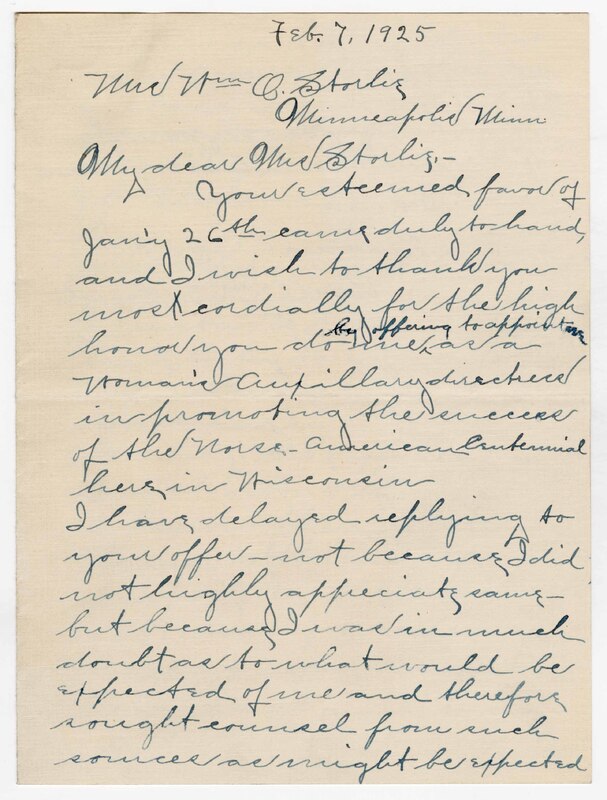 Feb. 7, 1925
Mrs Wm O. Storlie
Minneapolis Minn.
My dear Mrs Storlie,-
Your esteemed favor of
Jan'y 26th came duly to hand,
and I wish to thank you
most cordially for the high
by offering to appoint me
honor you do me, as a
Woman's Auxillary directress
in promoting the success
of the Norse-American Centennial
here in Wisconsin
I have delayed replying to
your offer - not because I did
not highly appreciate same -
but because I was in much
doubt as to what would be
expected of me and therefore
sought counsel from such
sources as might be expected